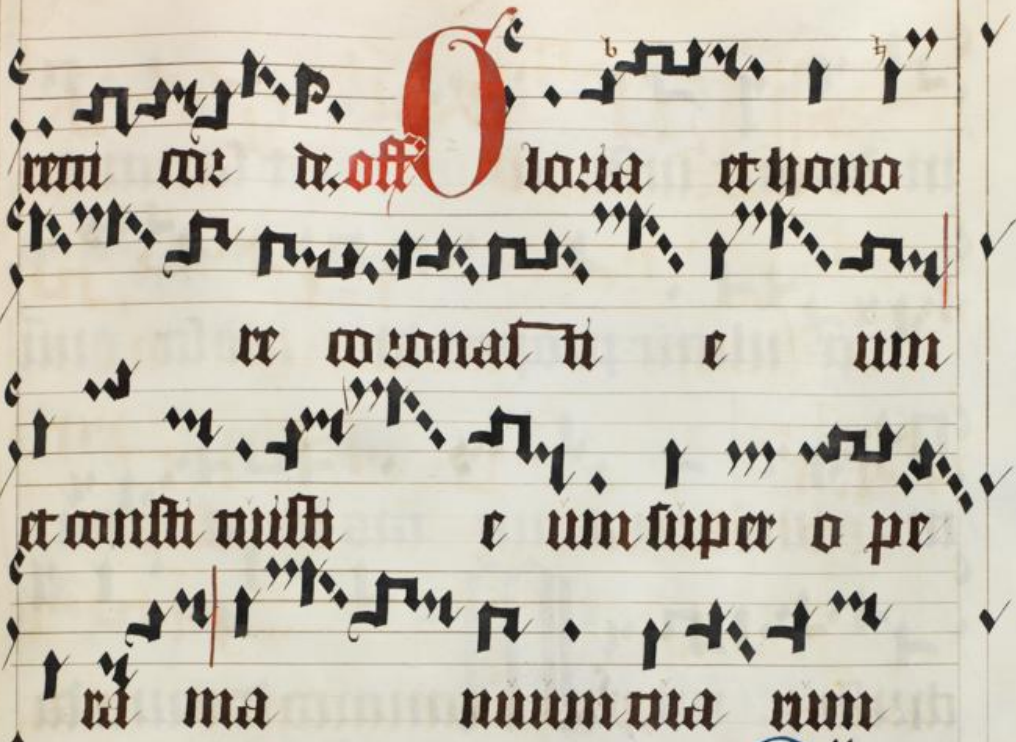 recti cor de. off Gloria et hono
re coronasti e um
et consti tuisti e um super o pe
ra ma nuum tua rum